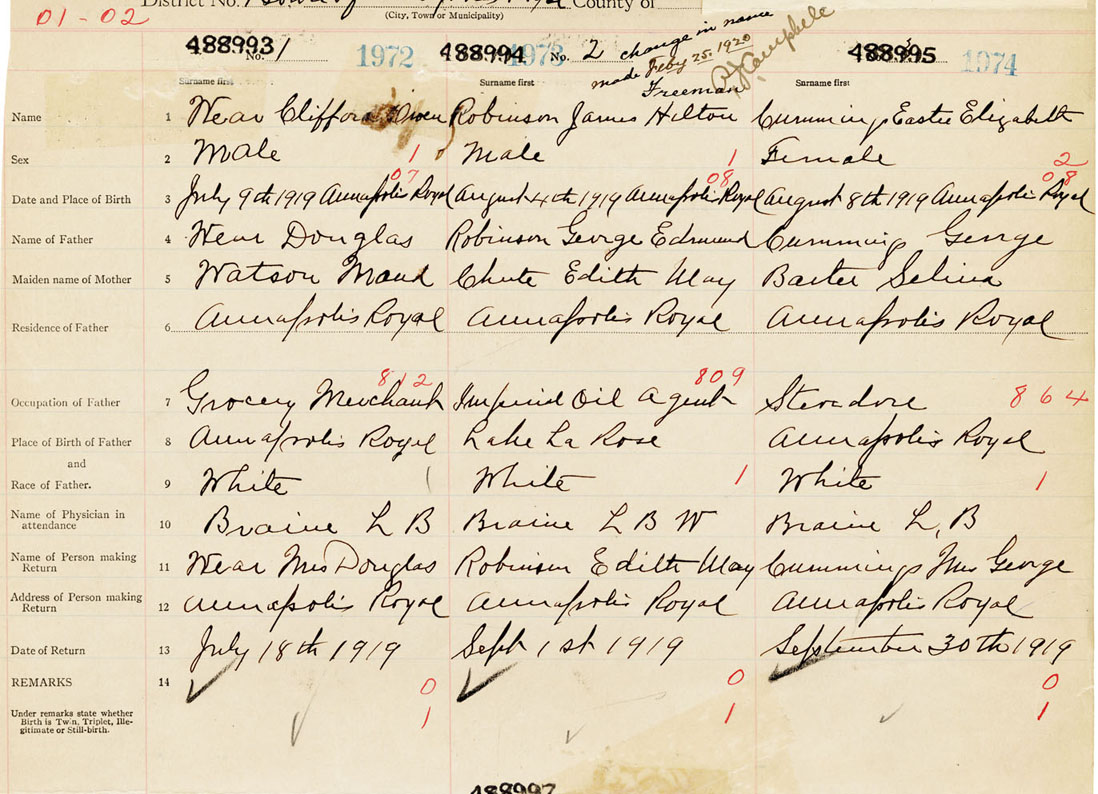 District No. County of
(City, Town or Municipality)
01-02
488993 No. 1 1972 488994 1973 No. 2 change in name 488995 3 1974
made Feby 25. 1920
Freeman
Campbell
Surname first Surname first Surname first
Name 1 Wear Clifford Owen Robinson James Hilton Cummings Eastie Elizabeth
Sex 2 Male 1 Male 1 Female 2
07 08 08
Date and Place of Birth 3 July 9th 1919 Annapolis Royal August 4th 1919 Annapolis Royal August 8th 1919 Annapolis Royal
Name of Father 4 Wear Douglas Robinson George Edmund Cummings George
Maiden name of Mother 5 Watson Maud Chute Edith May Baxter Selina
Residence of Father 6 Annapolis Royal Annapolis Royal Annapolis Royal
812 809 864
Occupation of Father 7 Grocery Merchant Imperial Oil Agent Stevadore
Place of Birth of Father 8 Annapolis Royal Lake La Rose Annapolis Royal
and
Race of Father. 9 White 1 White 1 White 1
Name of Physician in
attendance 10 Braine L B Braine L B W Braine L, B
Name of Person making
Return 11 Wear Mrs Douglas Robinson Edith May Cummings Mrs George
Address of Person making
Return 12 Annapolis Royal Annapolis Royal Annapolis Royal
Date of Return 13 July 18th 1919 Sept 1st 1919 September 30th 1919
REMARKS 14 0 0 0
Under remarks state whether
Birth is Twin, Triplet, Ille-
gitimate or Still-birth. 1 1 1
488997